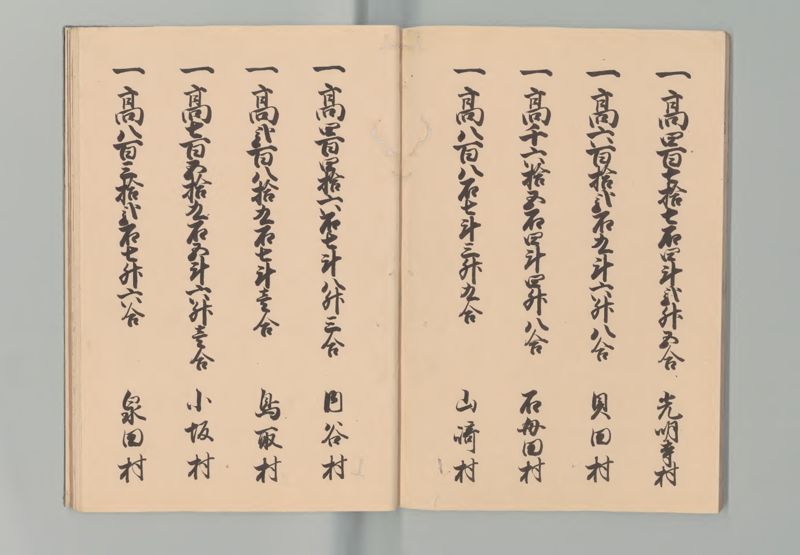 一高四百七拾七石四斗弐升五合 光明寺村
一高六百拾弐石九斗六升八合 貝田村
一高千六拾五石四斗四升八合 石母田村
一高八百八石七斗三升九合 山崎村
一高四百四拾六石七斗八升三合 内谷村
一高弐百八拾九石七斗壱合 鳥取村
一高七百五拾九石五斗六升壱合 小坂村
一高八百三拾弐石七升六合 泉田村